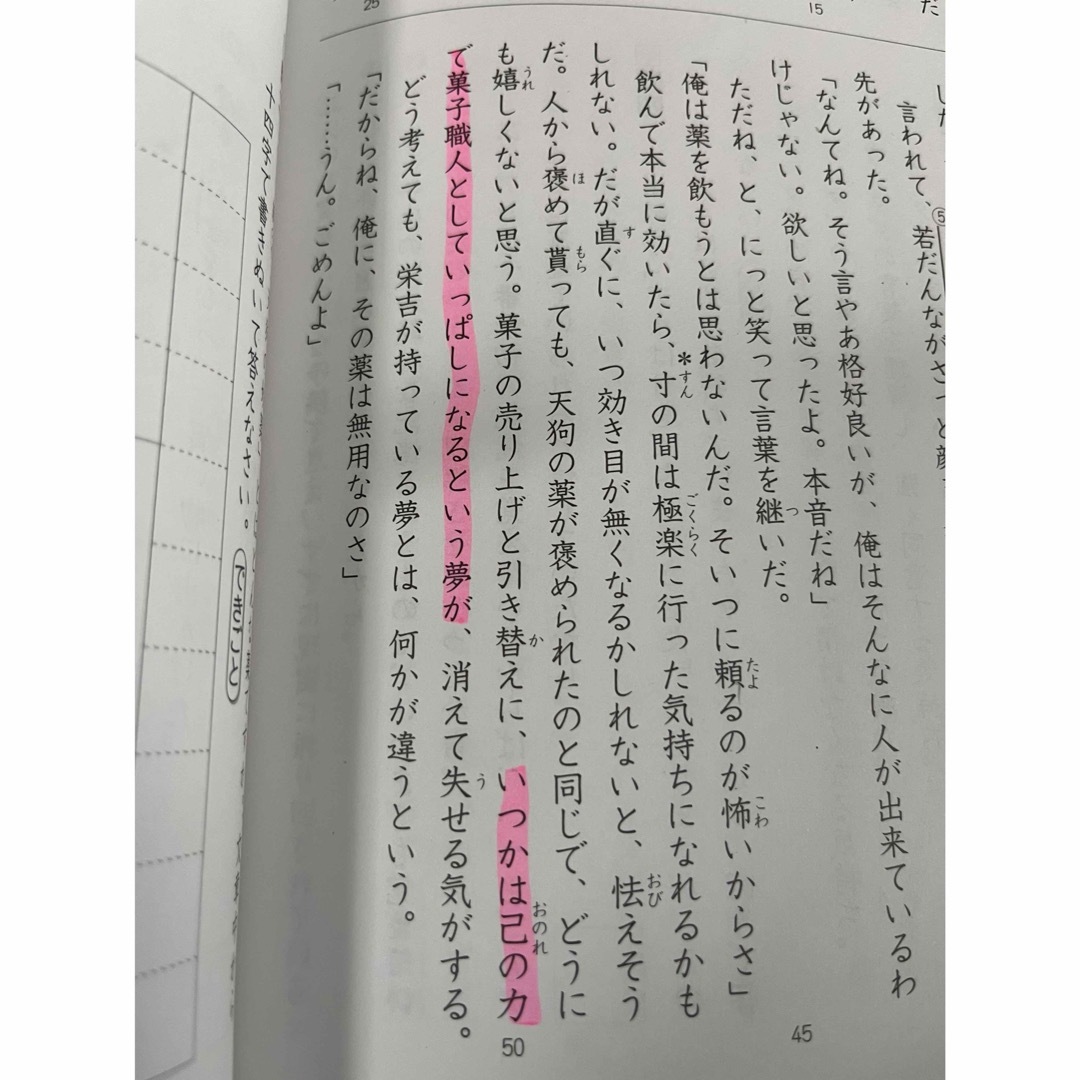 15
25
言われて、若だんながさっと顔
先があった。
「なんてね。そう言やあ格好良いが、俺はそんなに人が出来ているわ
けじゃない。欲しいと思ったよ。本音だね」
ただね、と、にっと笑って言葉を継いだ。
「俺は薬を飲もうとは思わないんだ。そいつに頼るのが怖いからさ」
飲んで本当に効いたら、*寸の間は極楽に行った気持ちになれるかも
しれない。だが直ぐに、いつ効き目が無くなるかしれないと、怯えそう
だ。人から褒めて貰っても、天狗の薬が褒められたのと同じで、どうに
も嬉しくないと思う。菓子の売り上げと引き替えに、いつかは己の力
で菓子職人としていっぱしになるという夢が、消えて失せる気がする。
どう考えても、栄吉が持っている夢とは、何かが違うという。
「だからね、俺に、その薬は無用なのさ」
「……うん。ごめんよ」
45
50
十四字で書きぬいて答えなさい。
できごと